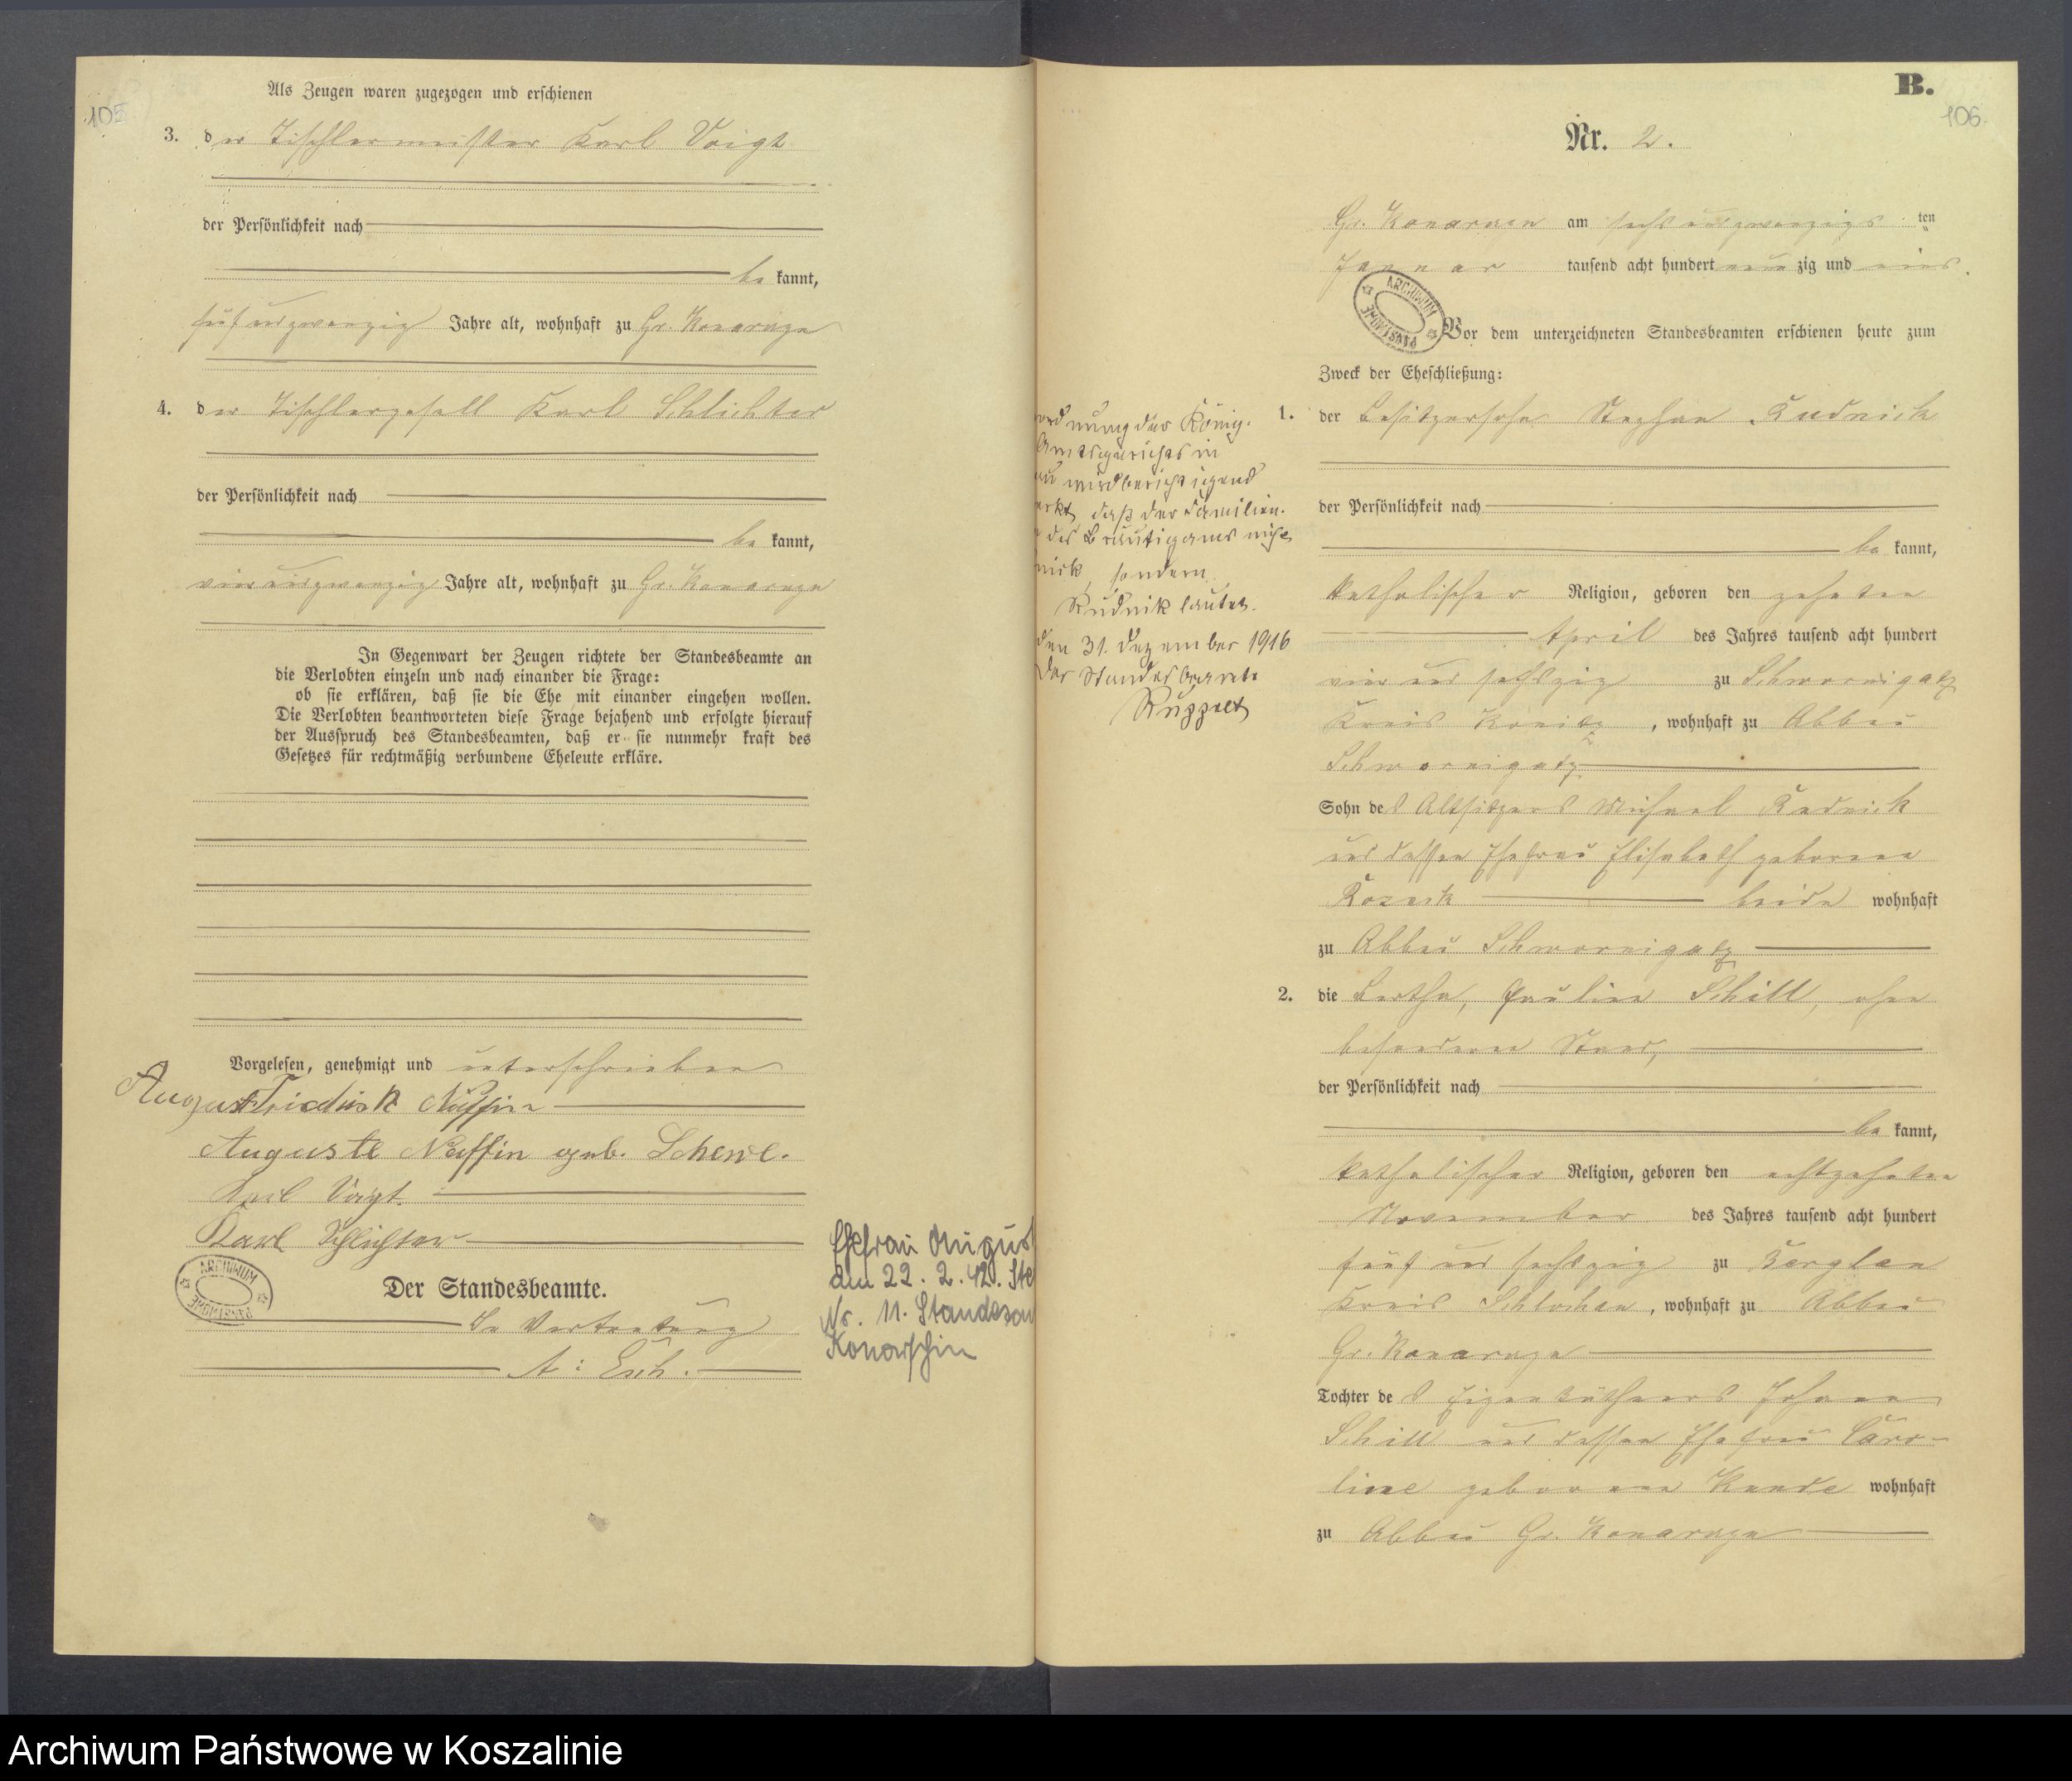 Als Zeugen waren zugezogen und erschienen
105
3. der Tischlermeister Karl Voigt
der Persönlichkeit nach
be kannt,
fünf und zwanzig Jahre alt, wohnhaft zu Gr. Konarczyn
4. der Tischlergesell Karl Schlichter
der Persönlichkeit nach
be kannt,
vier und zwanzig Jahre alt, wohnhaft zu Gr. Konarczyn
In Gegenwart der Zeugen richtete der Standesbeamte an
die Verlobten einzeln und nach einander die Frage:
ob sie erklären, daß sie die Ehe mit einander eingehen wollen.
Die Verlobten beantworteten diese Frage bejahend und erfolgte hierauf
der Ausspruch des Standesbeamten, daß er sie nunmehr kraft des
Gesetzes für rechtmäßig verbundene Eheleute erkläre.
Vorgelesen, genehmigt und unterschrieben
August
Auguste geb.
Karl Voigt
Karl Schlichter
ARCHIWUM PAŃSTWOWE
Der Standesbeamte.
In Vertretung
Ehefrau August
am 22. 2. 42. Ste
Nr. 11. Standesam
Konarschin
B.
106.
Nr. 2.
Gr. Konarczyn am sechs und zwanzigs ten
Januar tausend acht hundert neun zig und eins.
ARCHIWUM PAŃSTWOWE
Vor dem unterzeichneten Standesbeamten erschienen heute zum
Zweck der Eheschließung:
1. der Besitzersohn Stephan Rudnick
der Persönlichkeit nach
be kannt,
katholischer Religion, geboren den zehnten
April des Jahres tausend acht hundert
vier und sechszig zu Schwornigatz
Kreis Konitz, wohnhaft zu Abbau
Schwornigatz
Sohn des Altsitzers Michael Rudnick
und dessen Ehefrau Elisabeth geborene
beide wohnhaft
zu Abbau Schwornigatz
2. die Bertha, Pauline Schill, ohne
besonderen Stand,
der Persönlichkeit nach
be kannt,
katholischer Religion, geboren den achtzehnten
November des Jahres tausend acht hundert
fünf und sechszig zu
Kreis Schlochau, wohnhaft zu Abbau
Gr. Konarczyn
Tochter des Eigenkäthners Johann
Schill und dessen Ehefrau Caro-
line geborene wohnhaft
zu Abbau Gr. Konarczyn
ordnung des König.
Amtsgerichts in
wird berichtigend
erkt, daß der Familien-
des Bräutigams nicht
nick, sondern
Rudnik lautet.
den 31. Dezember 1916
Der Standesbeamte
Archiwum Państwowe w Koszalinie